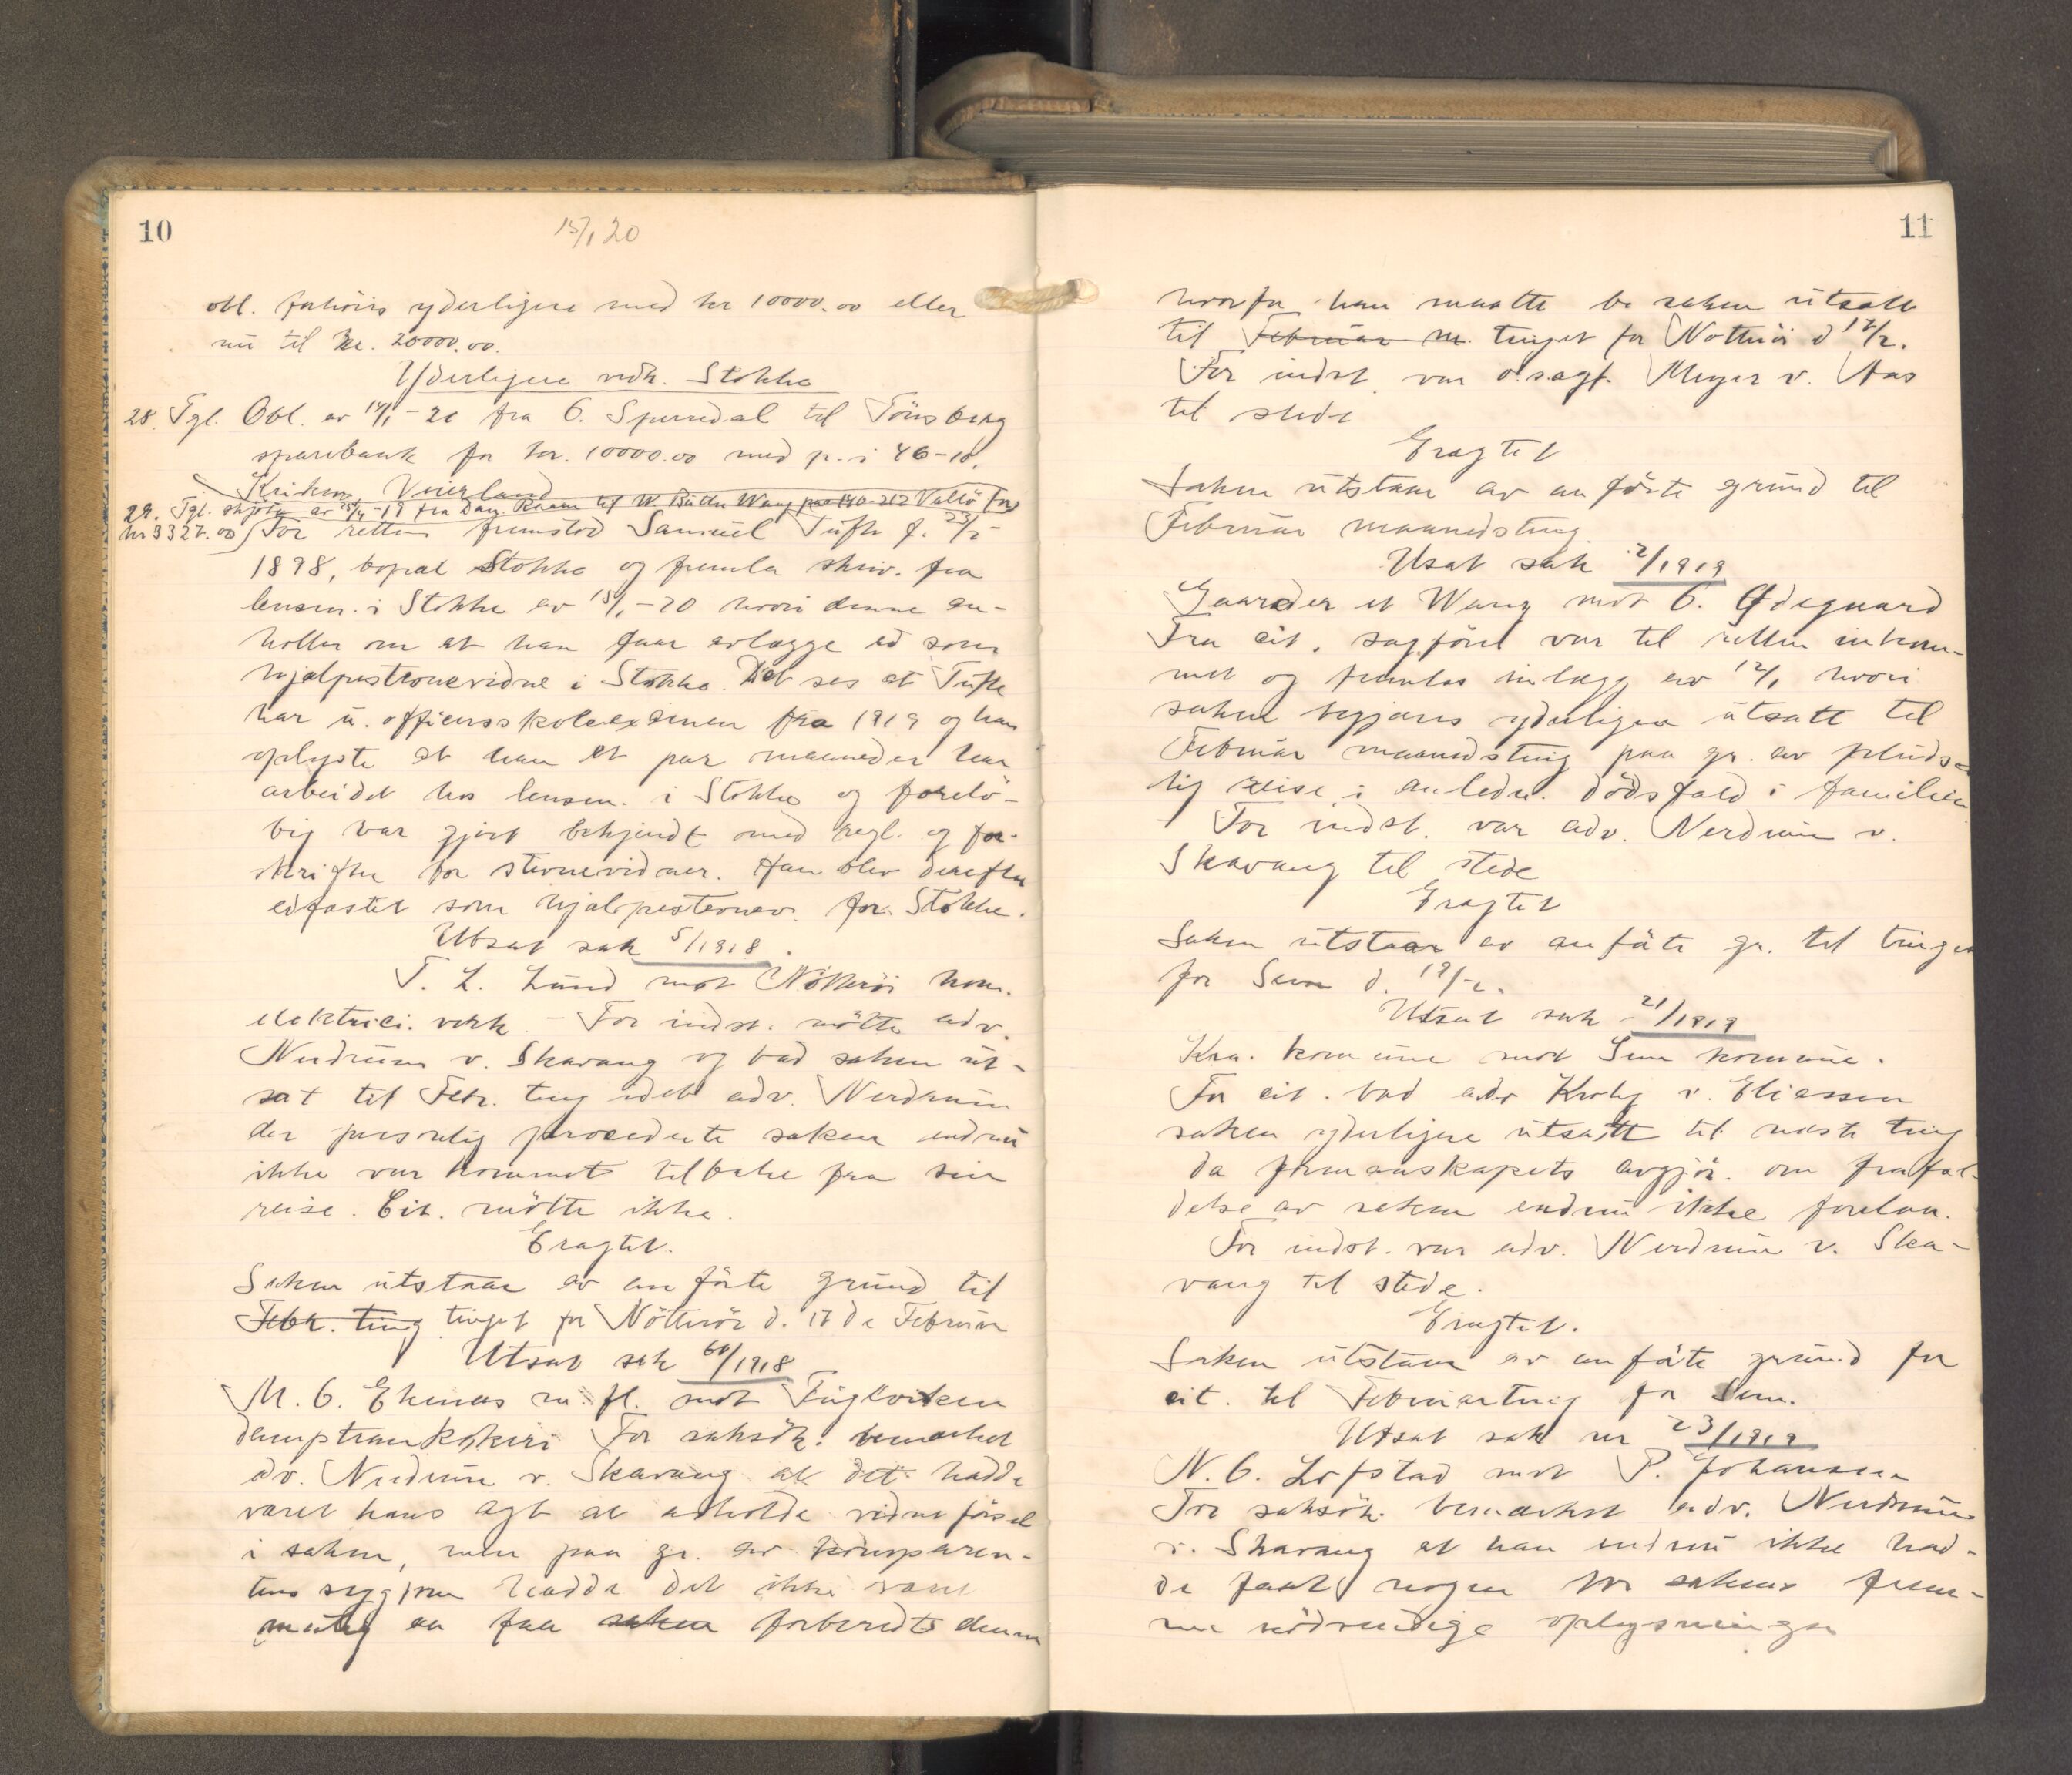 10
15/1 20
obl. forhøies yderligere med kr 10000.00 eller
nu til kr. 20000.00.
Yderligere vedk. Stokke
28. Tgl. Obl. av 14/1 - 20 fra C. Spurvedal til Tönsberg
sparebank for kr. 10000.00 med p. i 46-10.
Krikon, Veierland
29. Tgl. skjöte av 25/4 - 19 fra Dag. Raam til W. Bütte Wang paa 140-212 Vallö for
kr 3327.00
For retten fremstod Samuel Tufte f. 23/2 -
1898, bopæl Stokke og fremla skriv. fra
lensm. i Stokke av 15/1 - 20 hvori denne an-
holler om at han faar avlægge ed som
hjælpestevnevidne i Stokke. Det ses at Tufte
har u. officersskoleexamen fra 1919 og han
oplyste at han et par maaneder har
arbeidet hos lensm. i Stokke og forelö-
big var gjort bekjendt med regl. og for-
skrifter for stevnevidner. Han blev derefter
edfæstet som hjælpestevnev. for Stokke.
Utsat sak 5/1918.
T. L. Lund mot Nötterøi kom.
elektrici. verk. - For indst. mötte adv.
Nerdrum v. Skavang og bad saken ut-
sat til Febr. ting idet adv. Nerdrum
der personlig procederte saken endnu
ikke var kommet tilbake fra sin
reise. Cit. mötte ikke.
Eragtet.
Saken utstaar av anförte grund til
Febr. ting tinget for Nötterö d. 17de Februar
Utsat sak 60/1918
M. C. Ekenæs m. fl. mot Fuglevikens
damptrankokeri For saksök. bemærket
adv. Nerdrum v. Skavang at det hadde
været hans agt at avholde vidneförsel
i saken, men paa gr. av komparen-
tens sygdom hadde det ikke været
mulig aa faa saken forberedt denne
11
hvorfor han maatte be saken utsatt
til Februar m. tinget for Nötterøi d 17/2.
For indst. var o.sagf. Meyer v. Aas
til stede
Eragtet
Saken utstaar av anförte grund til
Februar maanedsting.
Utsat sak 2/1919
Gaarder et Wang mot C. Ødegaard
Fra cit. sagförel var til retten inkom-
met og fremlas inlægg av 12/1 hvori
saken begjæres yderligere utsatt til
Februar maanedsting paa gr. av pludse-
lig reise i anledn. dödsfald i familien
For indst. var adv. Nerdrum v.
Skavang til stede
Eragtet
Saken utstaar av anförte gr. til tinget
for Sem d. 19/2.
Utsat sak 21/1919
Kra. kommune mot Sem kommune.
For cit. bad adv Krohg v. Eliassen
saken yderligere utsatt til næste ting
da formanskapets avgjör. om frafal-
delse av saken endnu ikke forelaa.
For indst. var adv. Nerdrum v. Ska-
vang til stede.
Eragtet.
Saken utstaar av anförte grund for
cit. til Februarting for Sem.
Utsat sak nr 23/1919
N. C. Lofstad mot P. Johanssen
For saksök. bemærket adv. Nerdrum
v. Skavang at han endnu ikke had-
de faat nogen for sakens frem-
me nödvendige oplysninger